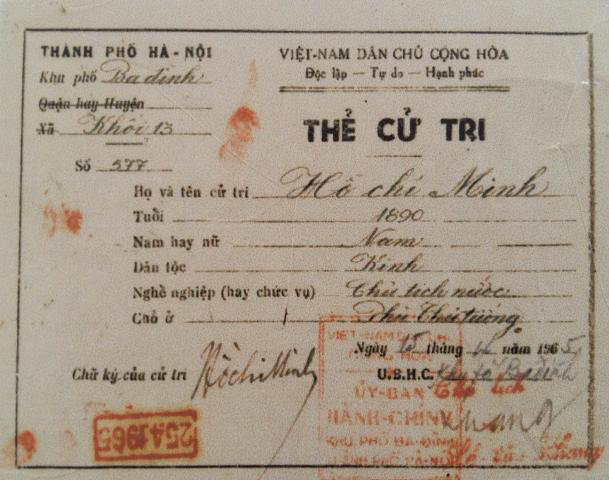 THÀNH PHỐ HÀ - NỘI
Khu phố Ba đình
Quận hay Huyện
Xã Khôi 13
Số 577
VIỆT-NAM DÂN CHỦ CỘNG HÒA
Độc lập — Tự do — Hạnh phúc
THẺ CỬ TRI
Họ và tên cử tri Hồ chí Minh
Tuổi 1890
Nam hay nữ Nam
Dân tộc Kinh
Nghề nghiệp (hay chức vụ) Chủ tịch nước
Chỗ ở Phủ Thủ tướng
Ngày 15 tháng năm 1965
Chữ ký của cử tri Hồ chí Minh
U.B.H.C. Khu phố Ba đình
VIỆT-NAM
ỦY-BAN
HÀNH-CHÍNH
KHU PHỐ BA-ĐÌNH
THÀNH PHỐ HÀ-NỘI
25.4.1965